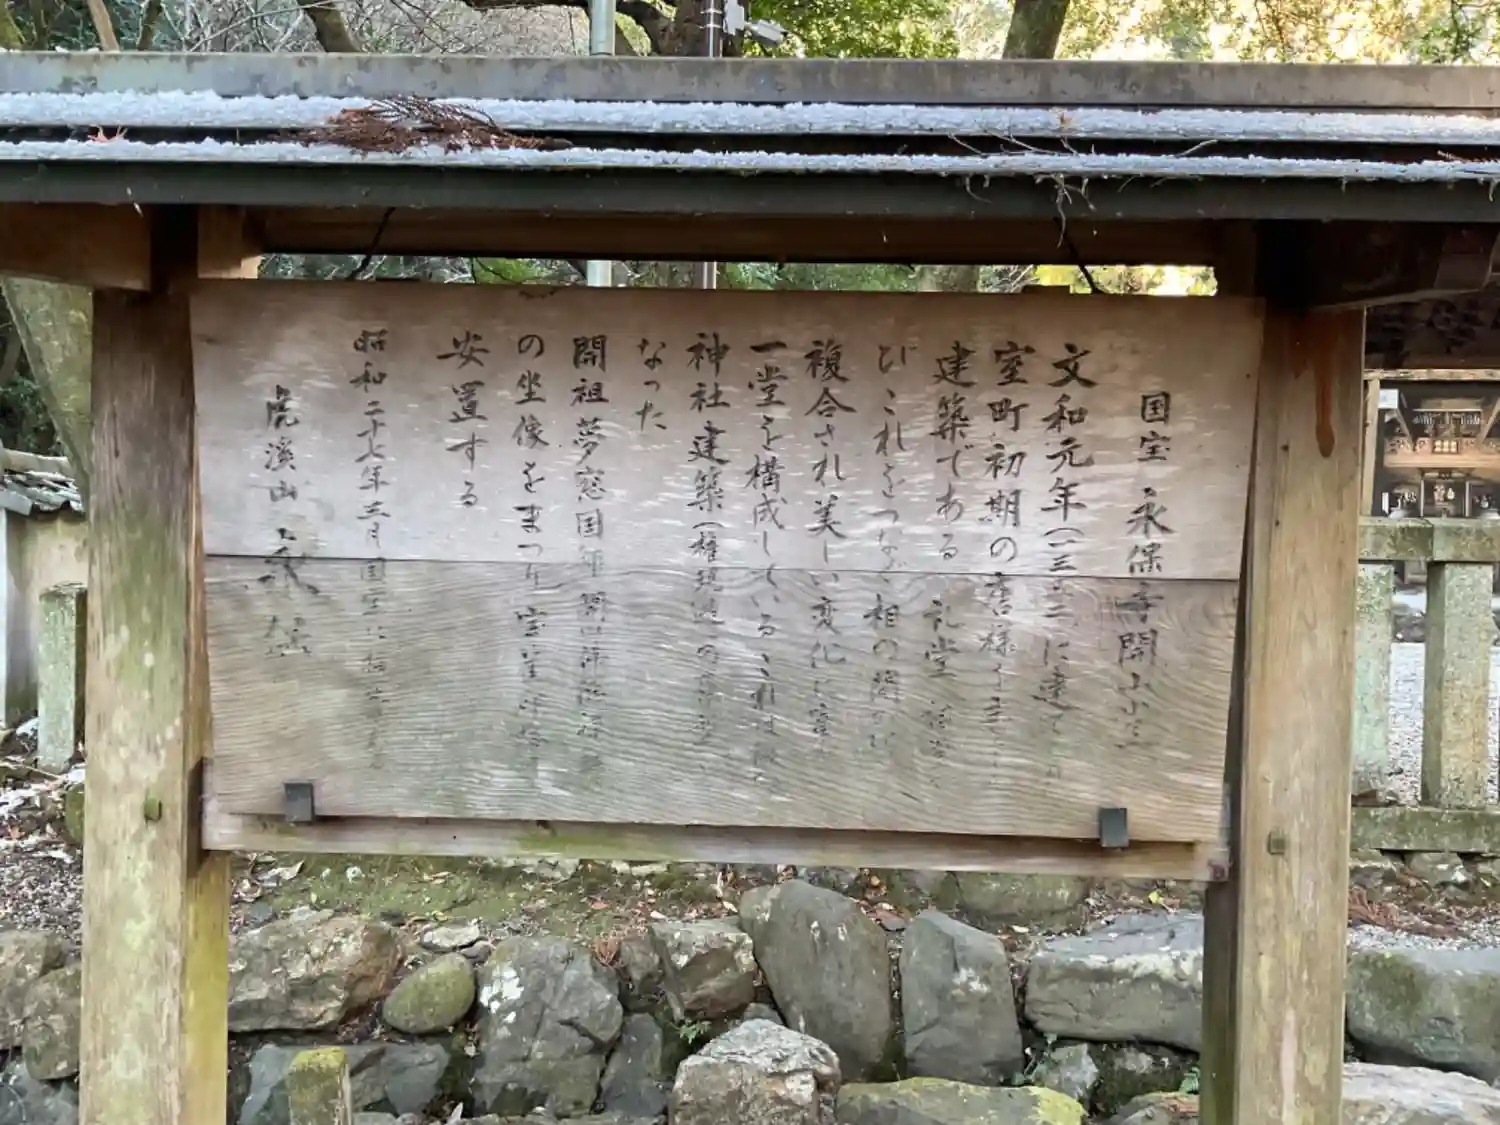 国宝 永保寺開山堂
文和元年(一三五二)に建て
室町初期の唐様
建築である 礼堂 祠堂
びこれをつなぐ相の間が
複合され美しい変化に富
一堂を構成しているこれは後
神社建築(権現造)の
なった
開祖夢窓国師 開山
の坐像をまつり
安置する
昭和二十七年三月国宝に指定
虎溪山 永保